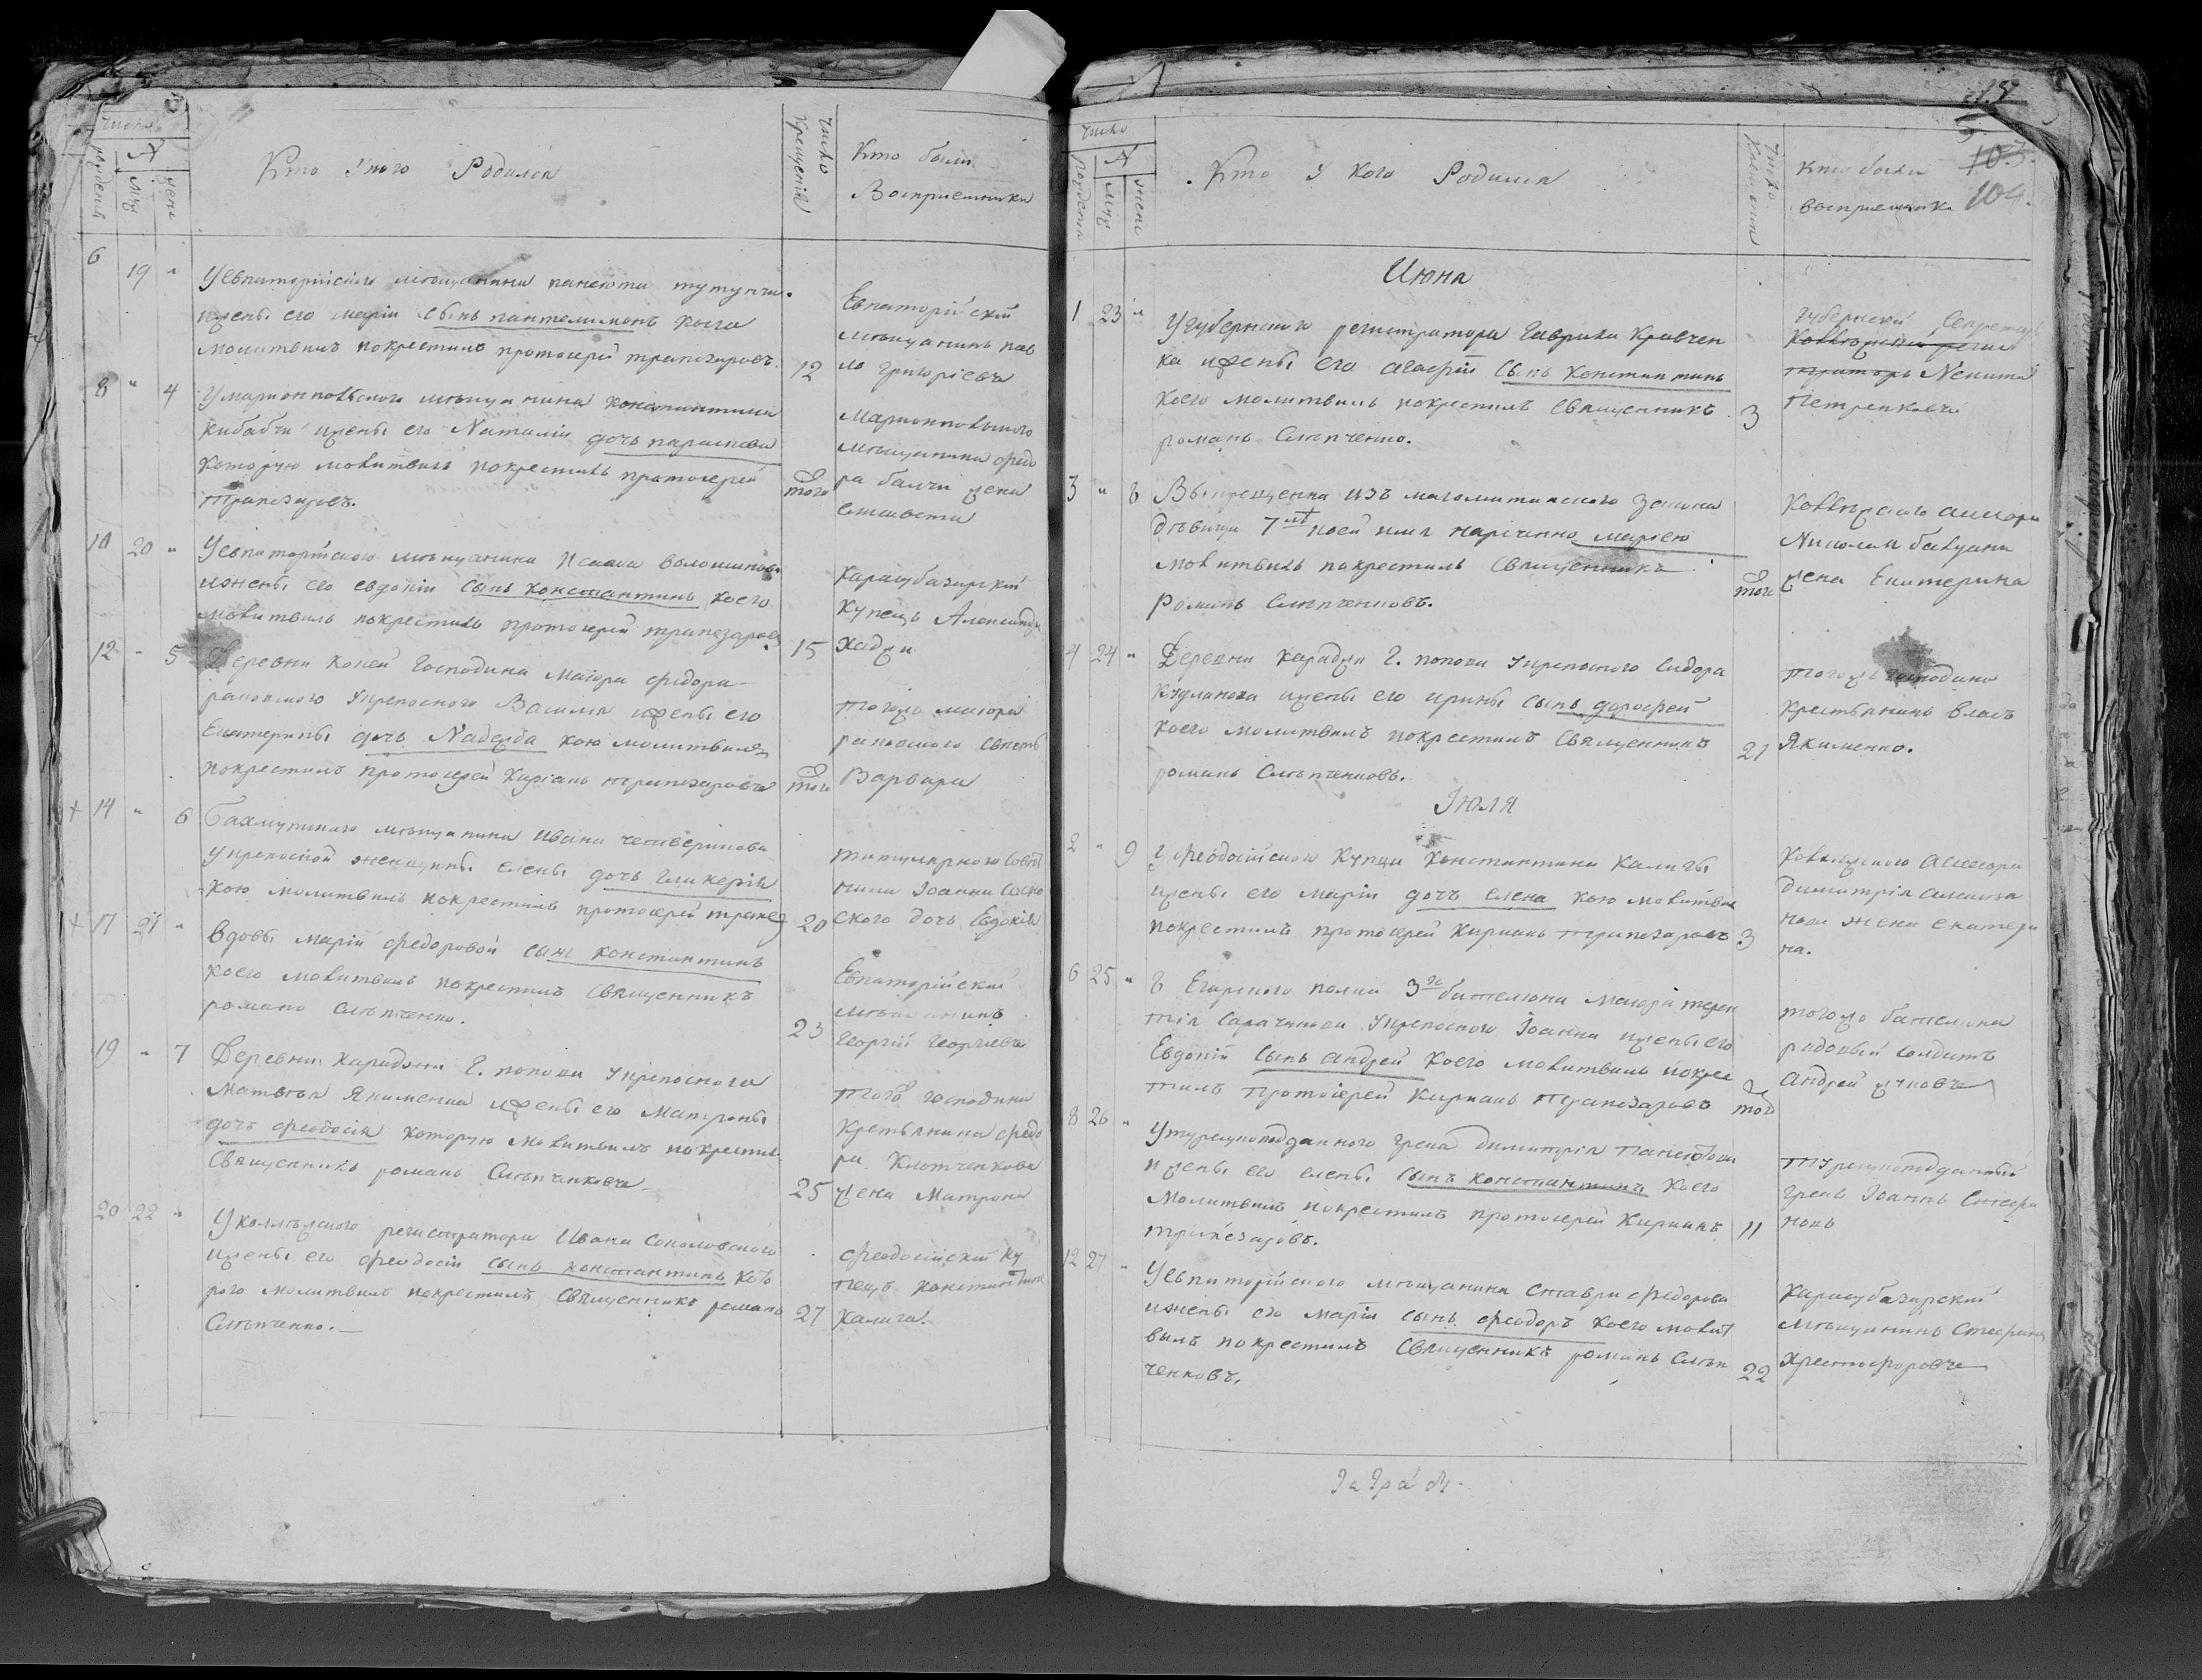 Число
рожденія
№
муж
жен
Кто у кого Родился
Число
Крещенія
Кто были
Восприемники
6 19 "
У евпаторійского мещанина панеюта тутунчи
ижены его маріи сынъ пантелимонъ коего
молитвилъ покрестилъ протоіерей трапезаровъ
12
Евпаторійскій
мѣщанинъ пав
ло григоріевъ
8 " 4
У маріоппольского мещанина константина
кибабчи ижены его Наталіи дочь параскева
которую молитвилъ покрестилъ протоіерей
трапезаровъ.
того
Маріоппольского
мѣщанина федо
ра балчи жена
елисавета
10 20 "
У евпаторійского мѣщанина Исаака волошинова
ижены его евдокіи сынъ константинъ коего
молитвилъ покрестилъ протоіерей трапезаровъ
15
Карасубазарскій
купецъ Александръ
хаджи
12 - 5
Деревни коней Господина Маіора федора
раковского укрепосного Василя ижены его
Екатерины дочь Надежда кою молитвилъ
покрестилъ протоіерей Киріанъ трапезаровъ
того
тогожъ маіора
раковского
Варвара
+ 14 " 6
Бахмутского мѣщанина ивана четверикова
укрепосной женщины елены дочь гликерія
кою молитвилъ покрестилъ протоіерей трапез
20
титулярного совѣт
ника Іоанна
ского дочь Евдокія
+ 17 21 "
Вдовы маріи федоровой сынъ константинъ
коего молитвилъ покрестилъ священникъ
романъ слѣпченко.
23
Евпаторійскій
мѣщанинъ
Георгій Георгіевъ
19 " 7
Деревни Караджи Г. попова укрепосного
Матвѣя Якименка ижены его Матроны
дочь феодосія которую молитвилъ покрестилъ
священникъ романъ Слѣпченковъ
25
того господина
крестьянина федо
ра Клотченкова
жена Матрона
20 22 "
У коллежского регистратора Ивана Соколовского
ижены его феодосіи сынъ константинъ кото
рого молитвилъ покрестилъ священникъ романъ
Слѣпченко.
27
феодосійскій ку
пецъ константинъ
Калига.
103.
104.
Число
рожденія
№
муж
жен
Кто у кого Родился
Число
Крещенія
Кто были
восприемник
Июня
1 23 "
У губернского регистратора Гаврила Кравчен
ка ижены его агафіи сынъ константинъ
коего молитвилъ покрестилъ священникъ
романъ Слѣпченко.
3
губернскій секретарь
Коллежскій регис
траторъ Никита
Петренковъ
3 " 8
Выкрещенна изъ магомитанского закона
дѣвица 7 лѣт коей имя наречанно маріею
молитвилъ покрестилъ священникъ
Романъ Слѣпченковъ.
того
Коллежского ассесора
Николая
жена Екатерина
4 24 "
Деревни Караджи Г. попова укрепосного Сидора
Кудлакова ижены его ирины сынъ дорофей
коего молитвилъ покрестилъ священникъ
романъ Слѣпченковъ.
21
тогожъ господина
крестьянинъ власъ
Якименко.
Іюля
2 " 9
У феодосійского купца константина калиги
ижены его маріи дочь елена кою молитвилъ
покрестилъ протоіерей Киріанъ трапезаровъ
3
Коллежского ассесора
димитрія
нова жена екатери
на.
6 25 "
6 Егарского полка 3го баталіона Маіора терен
тія Сарачинова укрепосного Іоанна ижены его
Евдокіи сынъ андрей коего молитвилъ покрес
тилъ Протоіерей Киріанъ трапезаровъ
того
тогожъ баталіона
рядовый солдатъ
андрей жуковъ
8 26 "
У турецкоподданного грека димитрія Панеотова
ижены его елены сынъ константинъ коего
молитвилъ покрестилъ протоіерей Киріанъ
трапезаровъ.
11
турецкоподданный
грекъ Іоаннъ Стефа
новъ
12 27 "
У евпаторійского мѣщанина Ставри федорова
ижены его маріи сынъ феодоръ коего молит
вилъ покрестилъ священникъ романъ Слѣп
ченковъ.
22
Карасубазарскій
мѣщанинъ Стефанъ
христофоровъ